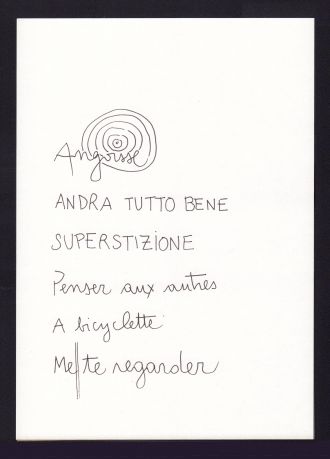 Angoisse
ANDRA TUTTO BENE
SUPERSTIZIONE
Penser aux autres
A bicyclette
Me te regarder